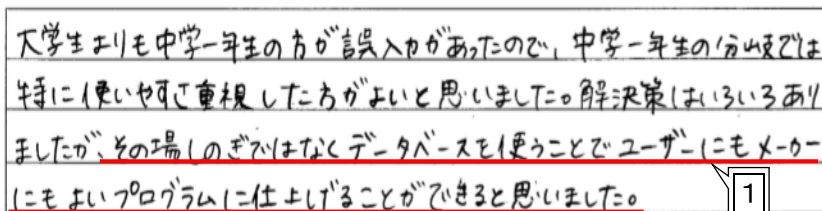 大学生よりも中学一年生の方が誤入力があったので、中学一年生の分岐では
特に使いやすさ重視した方がよいと思いました。解決策はいろいろあり
ましたが、その場しのぎではなくデータベースを使うことでユーザーにもメーカー
にもよいプログラムに仕上げることができると思いました。
1